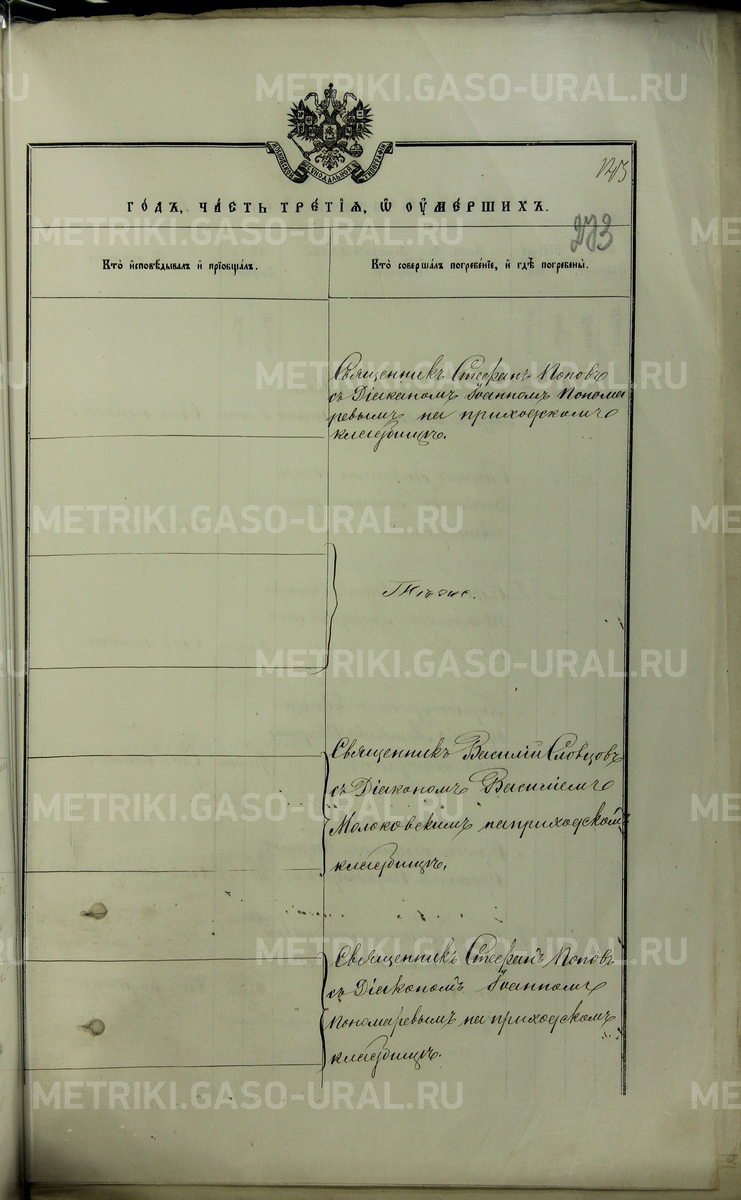 METRIKI.GASO-URAL.RU
МОСКОВСКОЙ СѴНОДАЛЬНОЙ ТИПОГРАФІИ
273
го́дъ, ча́сть тре́тїѧ, ѡ᾽ ᲂу҆ме́ршихъ.
Кто̀ и҆сповѣ́дывалъ и҆ прїѡбща́лъ.
Кто̀ соверша́лъ погребе́нїе, и҆ гдѣ̀ погребены̀.
Священникъ Стефанъ Поповъ
съ Діакономъ Іоанномъ Понома
ревымъ на приходскомъ
кладбищѣ.
Тѣже.
Священникъ Василій Словцовъ
съ Діакономъ Василіемъ
Молоковскимъ на приходскомъ
кладбищѣ.
Священникъ Стефанъ Поповъ
съ Діакономъ Іоанномъ
Пономаревымъ на приходскомъ
кладбищѣ.